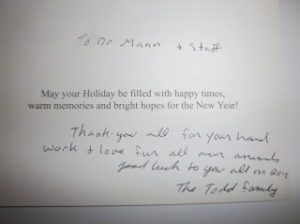 To Dr Mann + Staff
May your Holiday be filled with happy times,
warm memories and bright hopes for the New Year!
Thank-you all for your hard
work + love for all our animals
good luck to you all in
The Todd Family